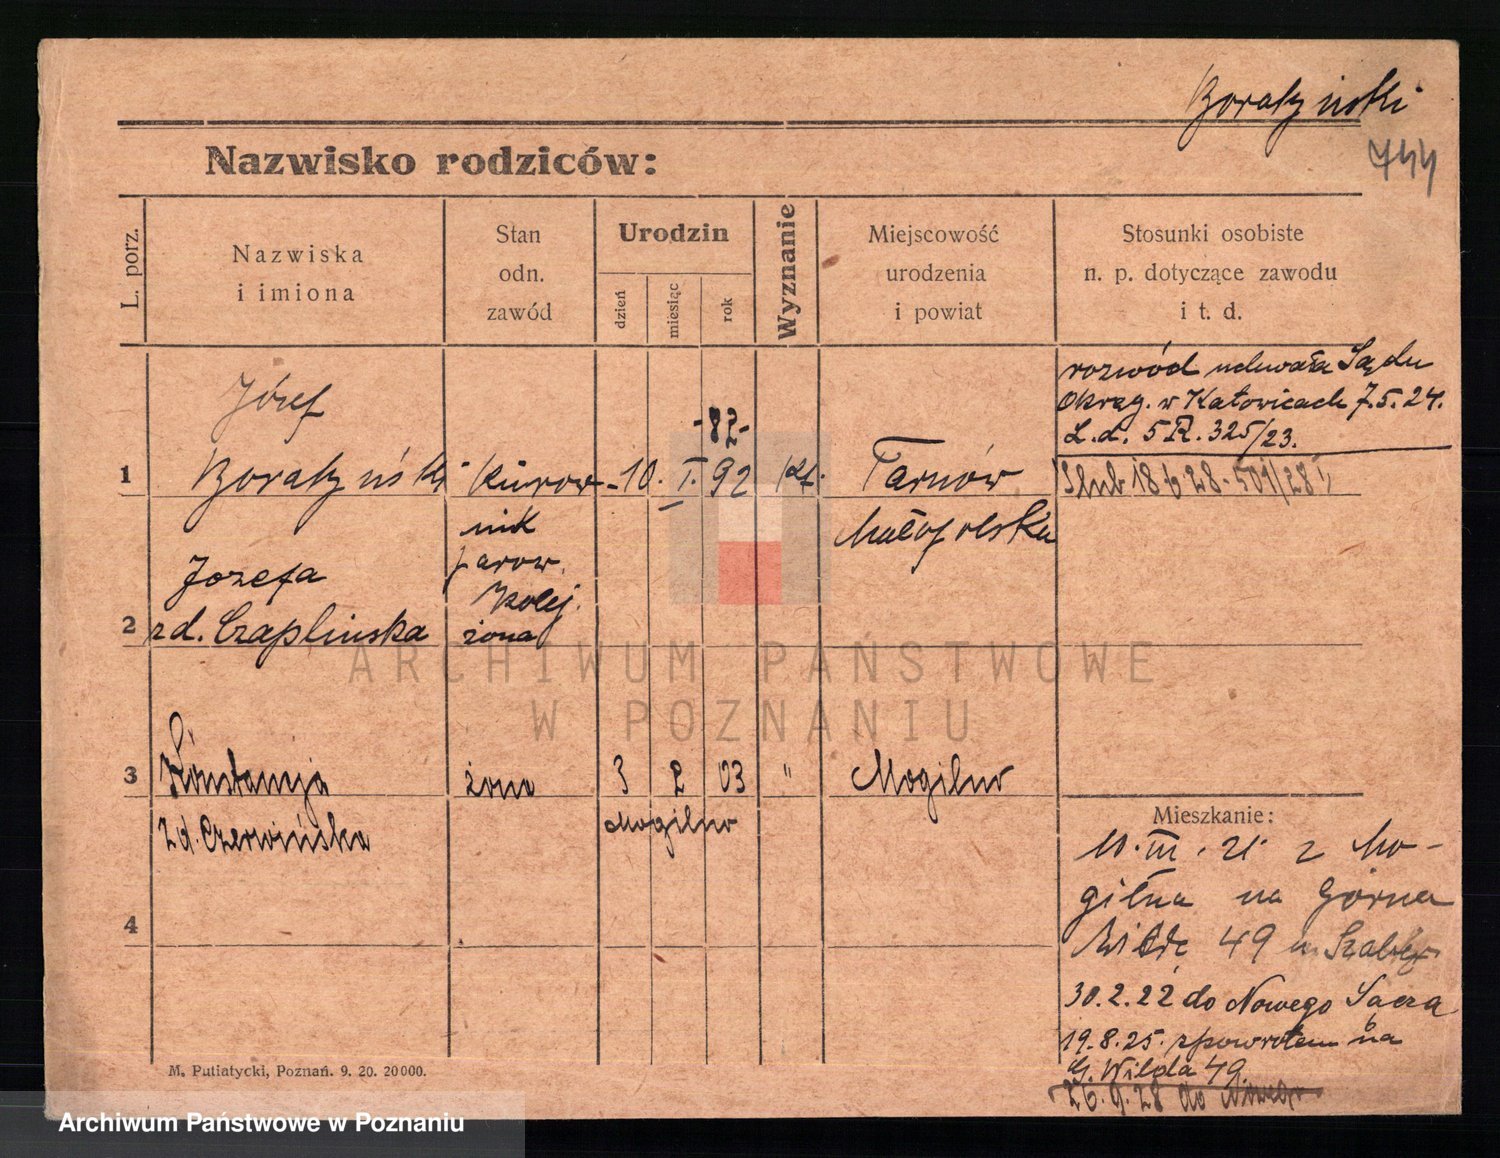 Boratyński
744
Nazwisko rodziców:
L. porz.
Nazwiska
i imiona
Stan
odn.
zawód
Urodzin
dzień
miesiąc
rok
Wyznanie
Miejscowość
urodzenia
i powiat
Stosunki osobiste
n. p. dotyczące zawodu
i t. d.
rozwód uchwała Sądu
Okręg. w Katowicach 7.5.24.
L.d. 5 R. 325/23.
Ślub 18 6 28 - 501/28
Józef
-82-
1 Boratyński Kierow- 10. I. 92 Kt. Tarnów
nik Małopolska
parow.
Jozefa kolej.
2 zd. Czaplinska żona
3 Konstancja żona 3 2 03 " Mogilno
zd. Czerwińska Mogilno
4
Mieszkanie:
10. III. 21. z Mo-
gilna na Górna
Wildę 49 u
30.2.22 do Nowego Sącza
19.8.25. zpowrotem na
G. Wilda 49.
26.9.28 do
M. Putiatycki, Poznań. 9. 20. 20000.
ARCHIWUM PAŃSTWOWE
W POZNANIU
Archiwum Państwowe w Poznaniu